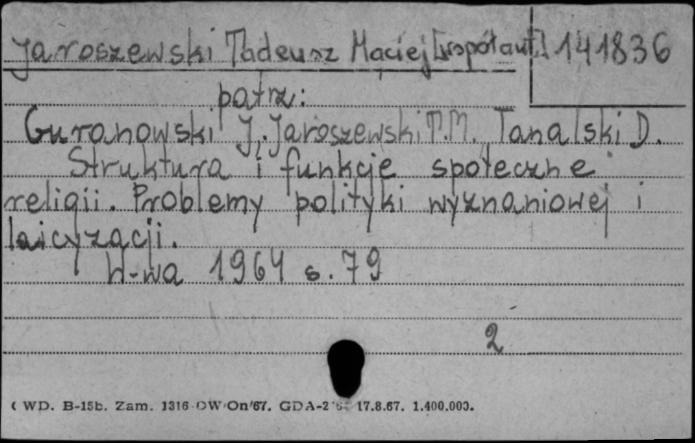 Jaroszewski Tadeusz Maciej [współaut.] 141836
patrz:
Guranowski J., Jaroszewski T.M. Tanalski D.
Struktura i funkcje społeczne
religii. Problemy polityki wyznaniowej i
laicyzacji.
W-wa 1964 s. 79
2
WD. B-15b. Zam. 1316 OW On/67. GDA-2 17.8.67. 1.400.000.